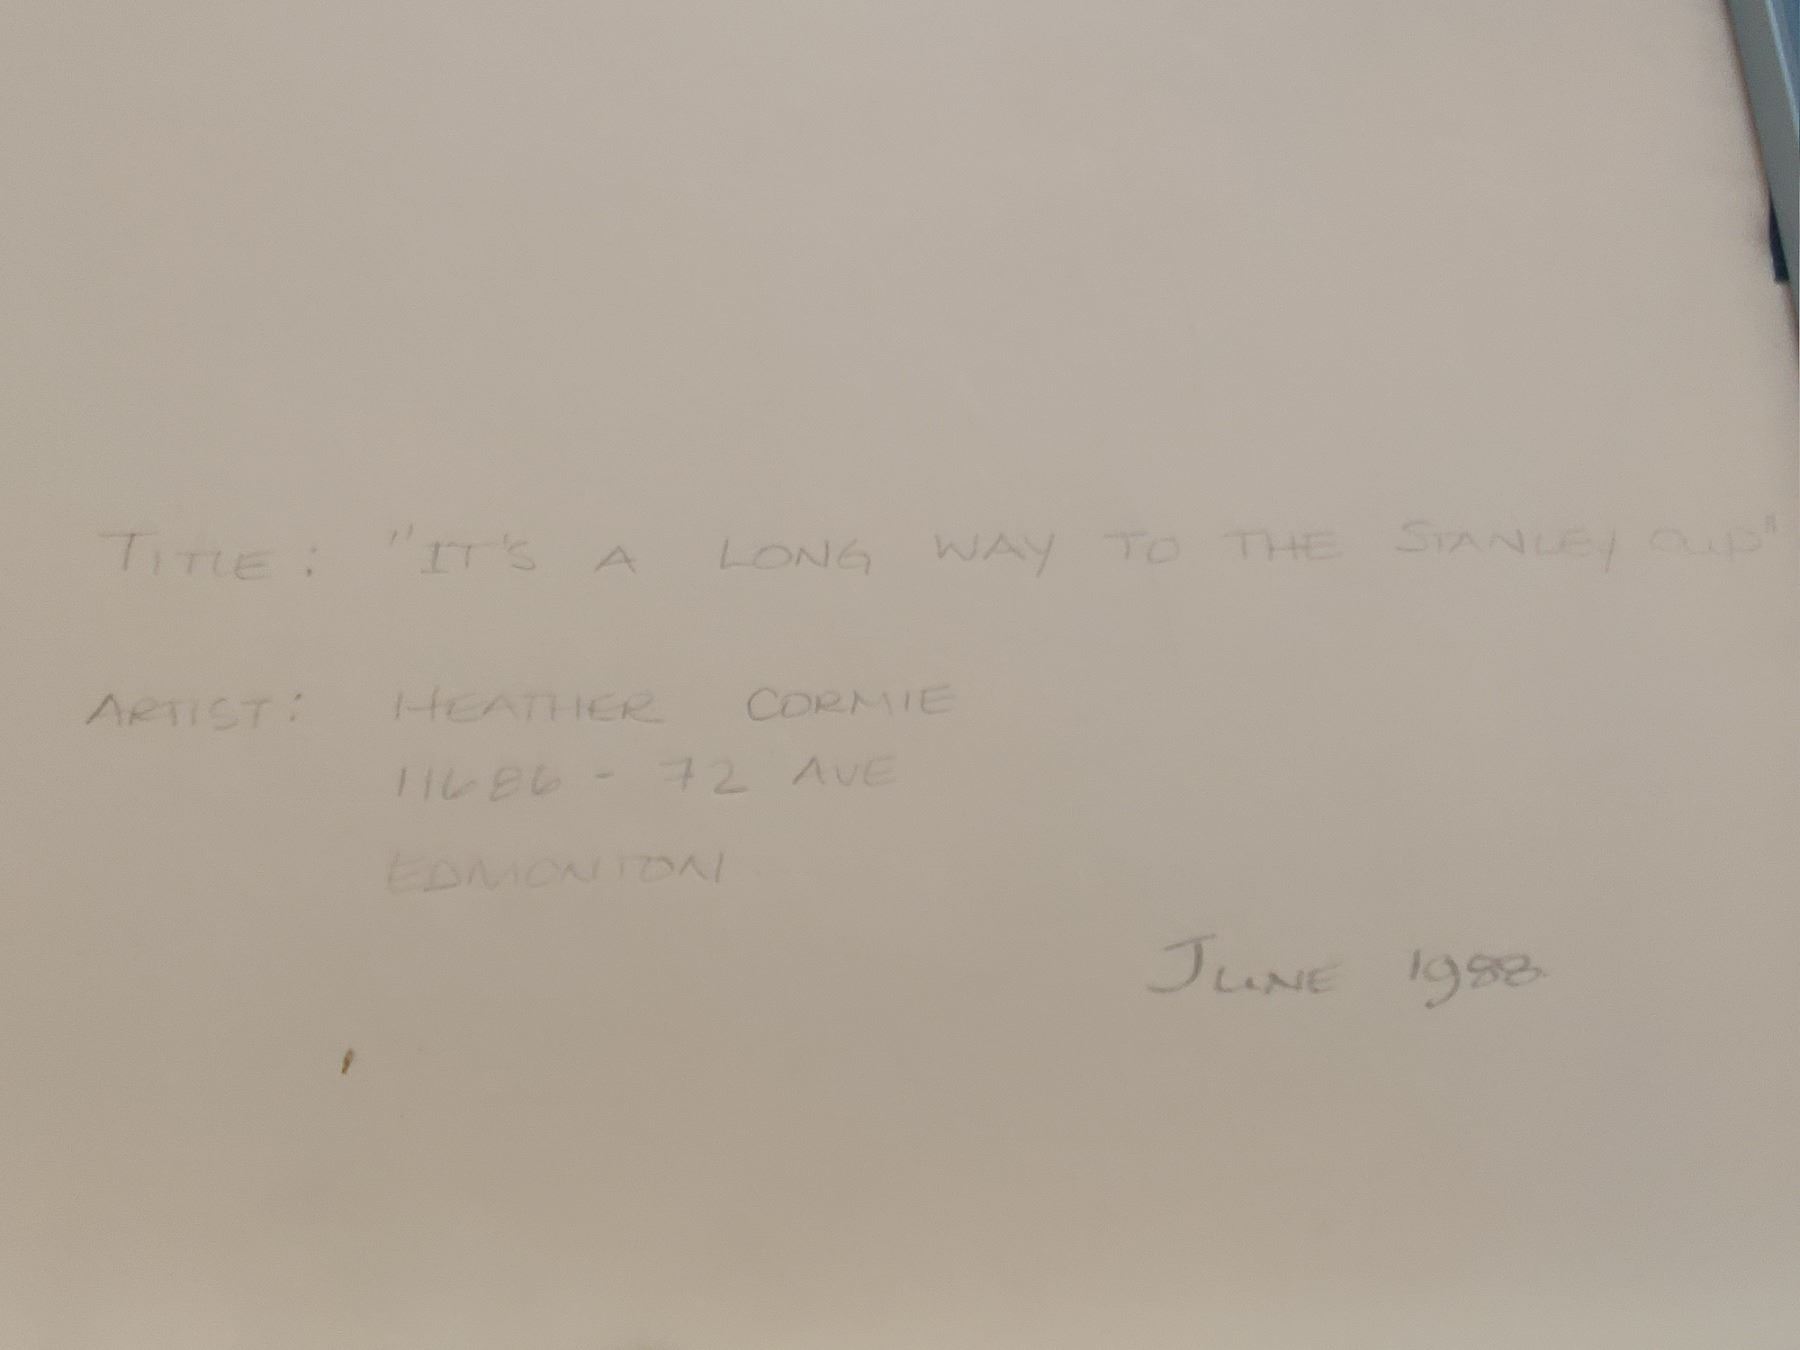 TITLE: "IT'S A LONG WAY TO THE STANLEY CUP"
ARTIST: HEATHER CORMIE
11686 - 72 AVE
EDMONTON
JUNE 1983